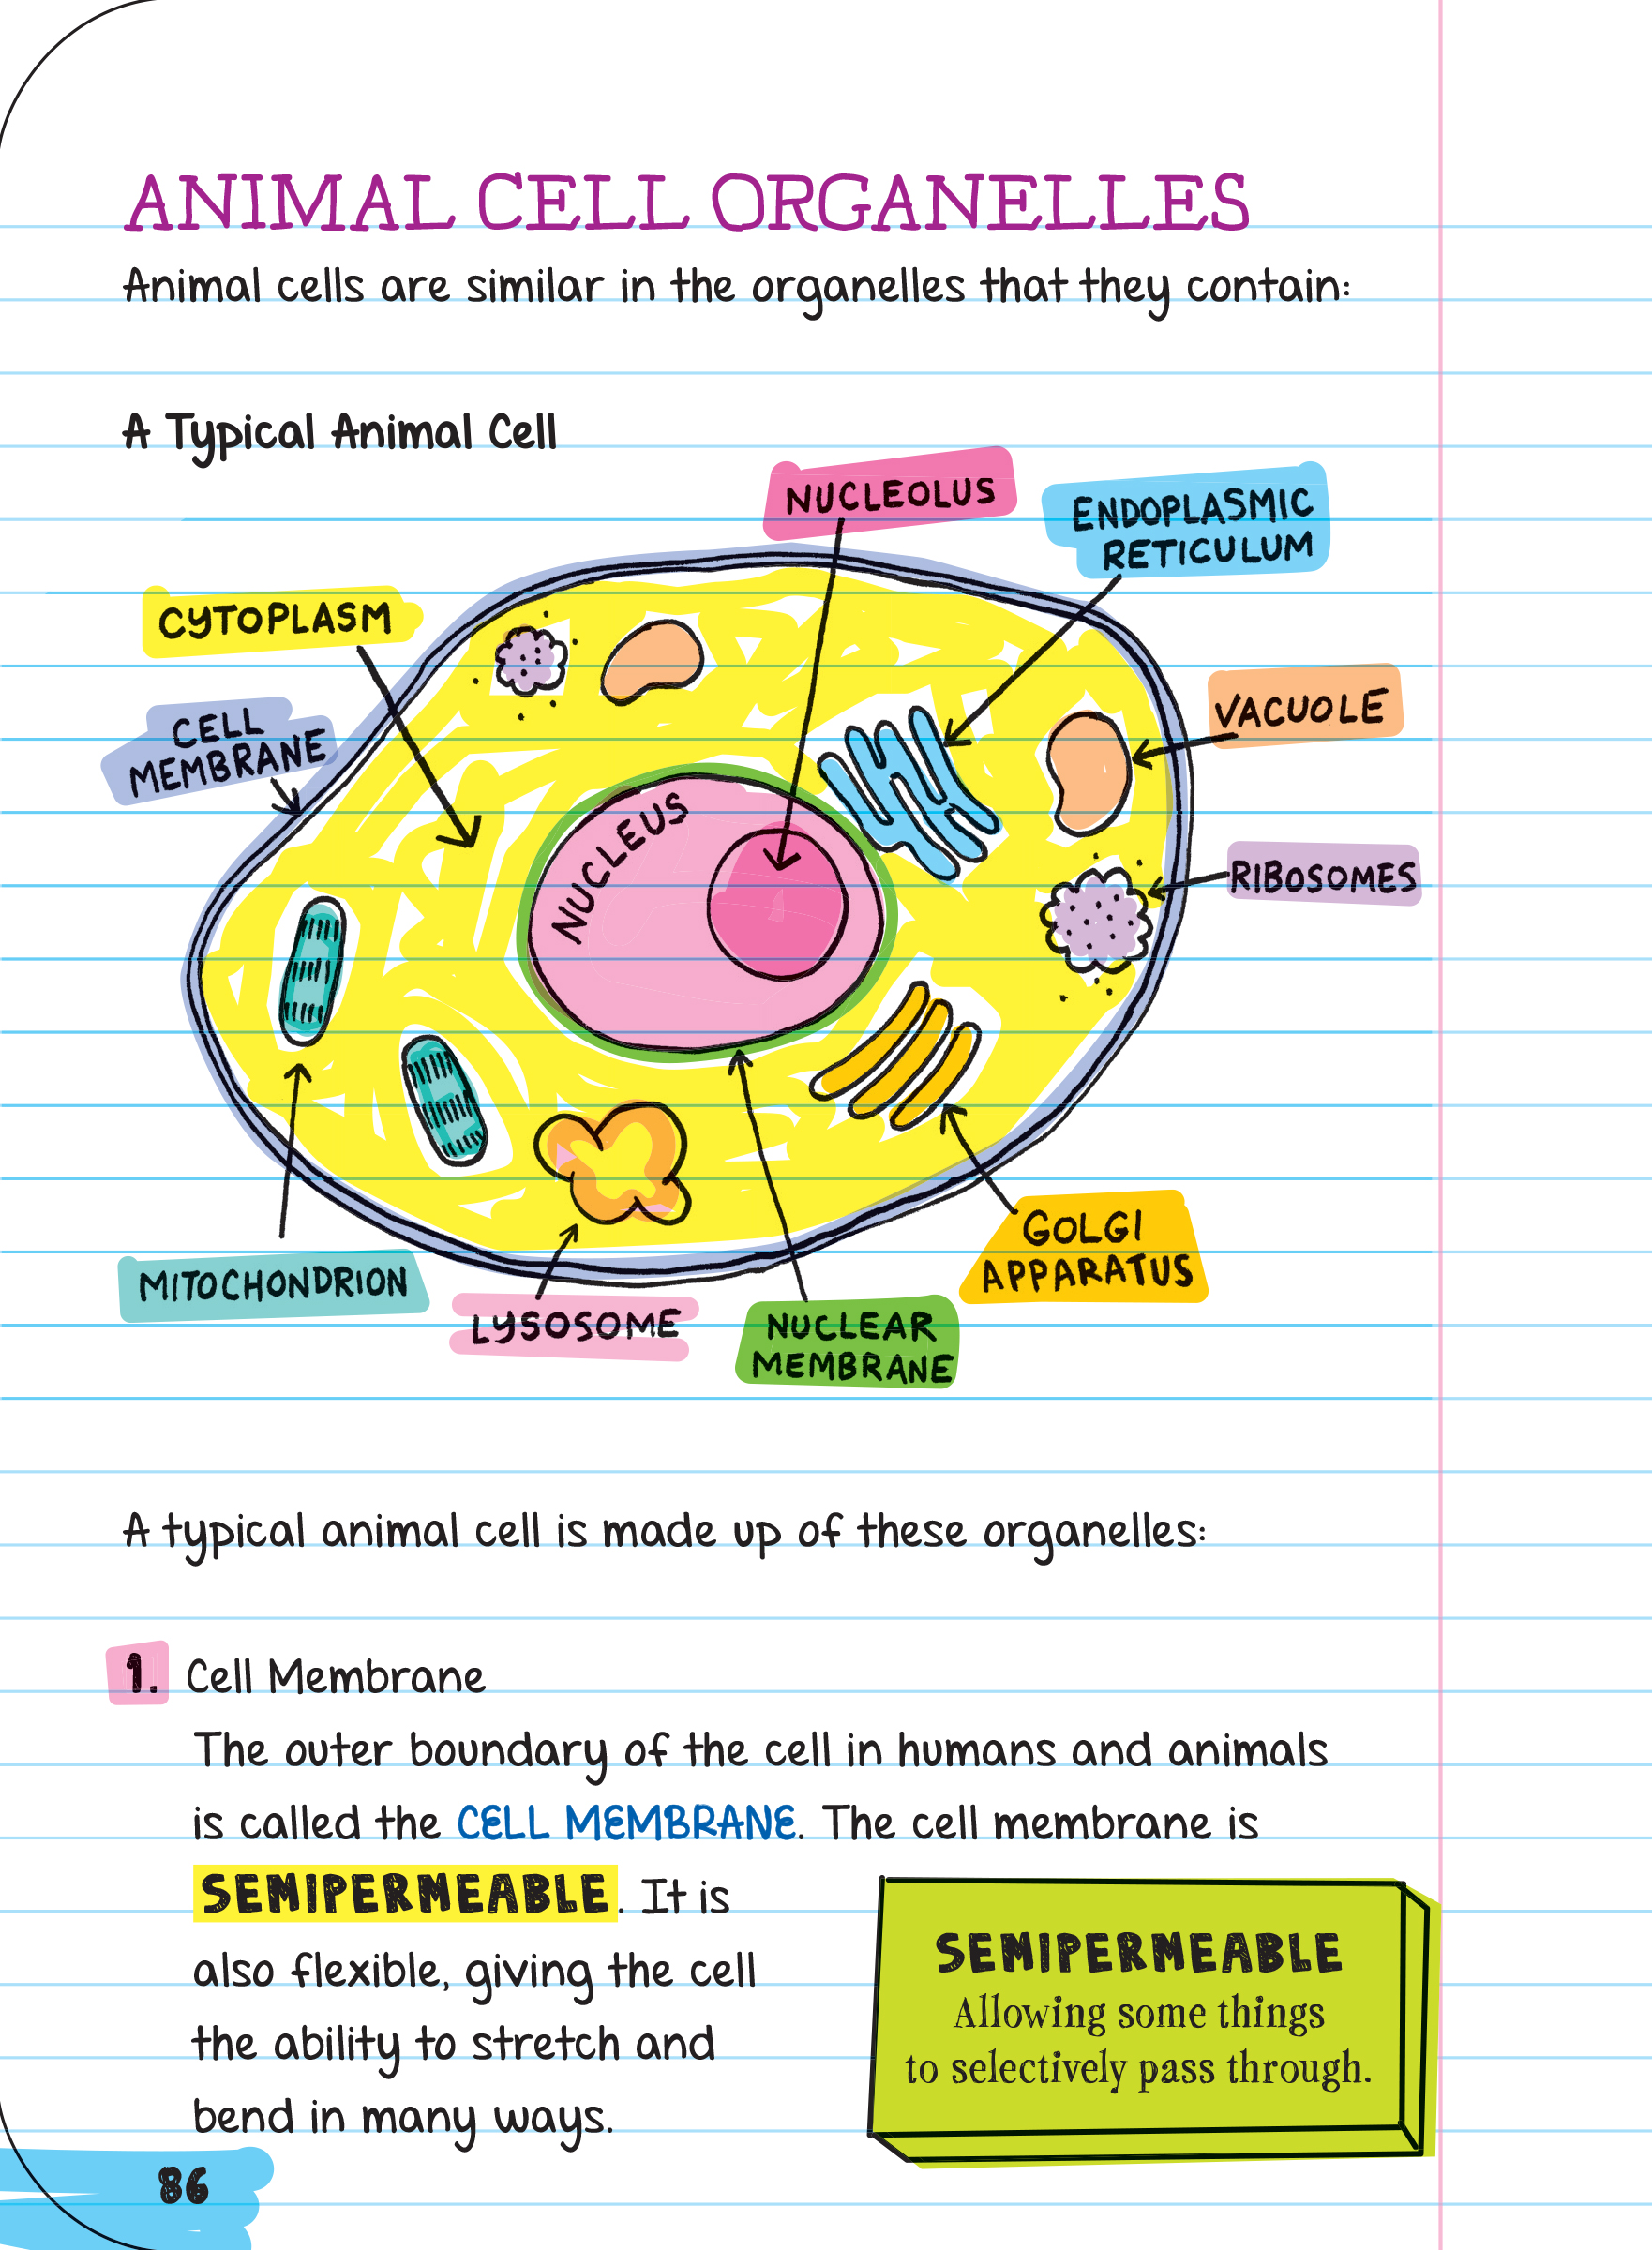 ANIMAL CELL ORGANELLES
Animal cells are similar in the organelles that they contain:
A Typical Animal Cell
NUCLEOLUS
ENDOPLASMIC
RETICULUM
CYTOPLASM
CELL
MEMBRANE
VACUOLE
NUCLEUS
RIBOSOMES
MITOCHONDRION
LYSOSOME
NUCLEAR
MEMBRANE
GOLGI
APPARATUS
A typical animal cell is made up of these organelles:
1. Cell Membrane
The outer boundary of the cell in humans and animals
is called the CELL MEMBRANE. The cell membrane is
SEMIPERMEABLE. It is
also flexible, giving the cell
the ability to stretch and
bend in many ways.
SEMIPERMEABLE
Allowing some things
to selectively pass through.
86